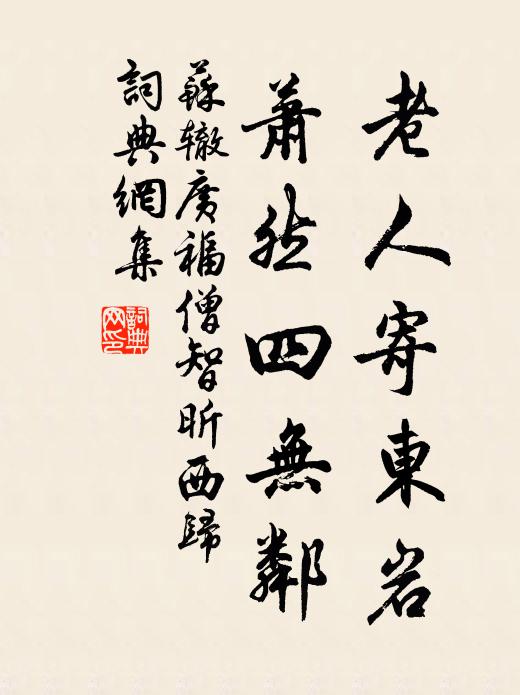 老人寄東岩
蕭然四無鄰
蘇辙廣福僧智昕西歸
詞典網集
詞典
网印